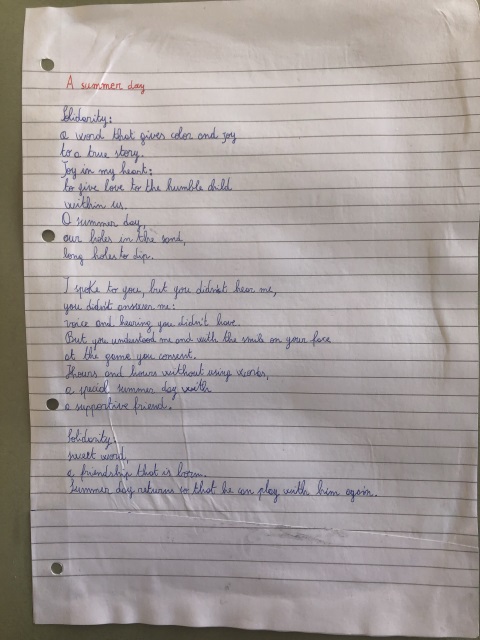 A summer day
Solidarity:
a word that gives color and joy
to a true story.
Joy in my heart:
to give love to the humble child
within us.
O summer day,
our holes in the sand,
long holes to dip.
I spoke to you, but you didn't hear me,
you didn't answer me:
voice and hearing you didn't have.
But you understood me and with the smile on your face
at the game you consent.
Hours and hours without using words,
a special summer day with
a supportive friend.
Solidarity:
sweet word,
a friendship that is born.
Summer day returns so that he can play with him again.